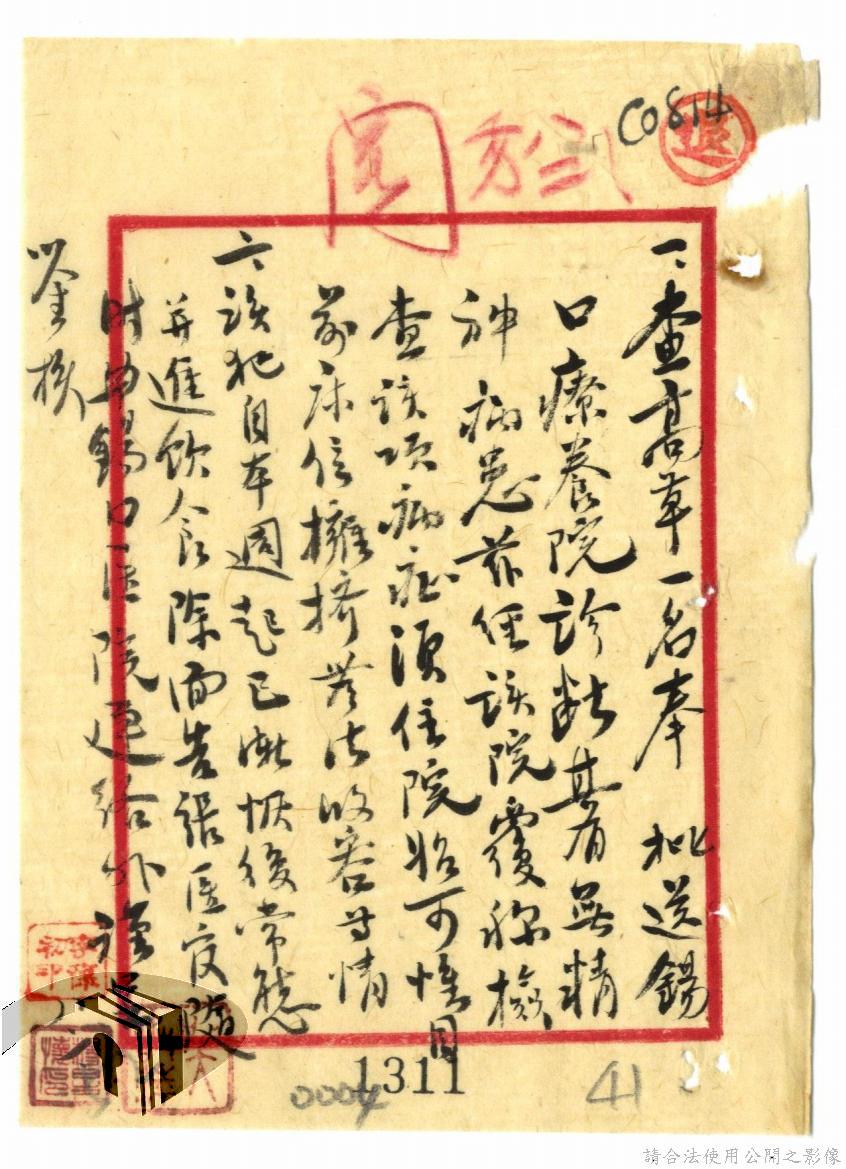 C0814
一、查高草一名奉 批送錫
口療養院診斷其有無精
神病患茲經該院覆稱檢
查該項病症須住院始可惟目
前床位擁擠無法收容等情
二、該犯自本週起已漸恢復常態
并進飲食除面告張医官隨
時與錫口医院連絡外謹呈
鑒核
1311
0004
41
請合法使用公開之影像